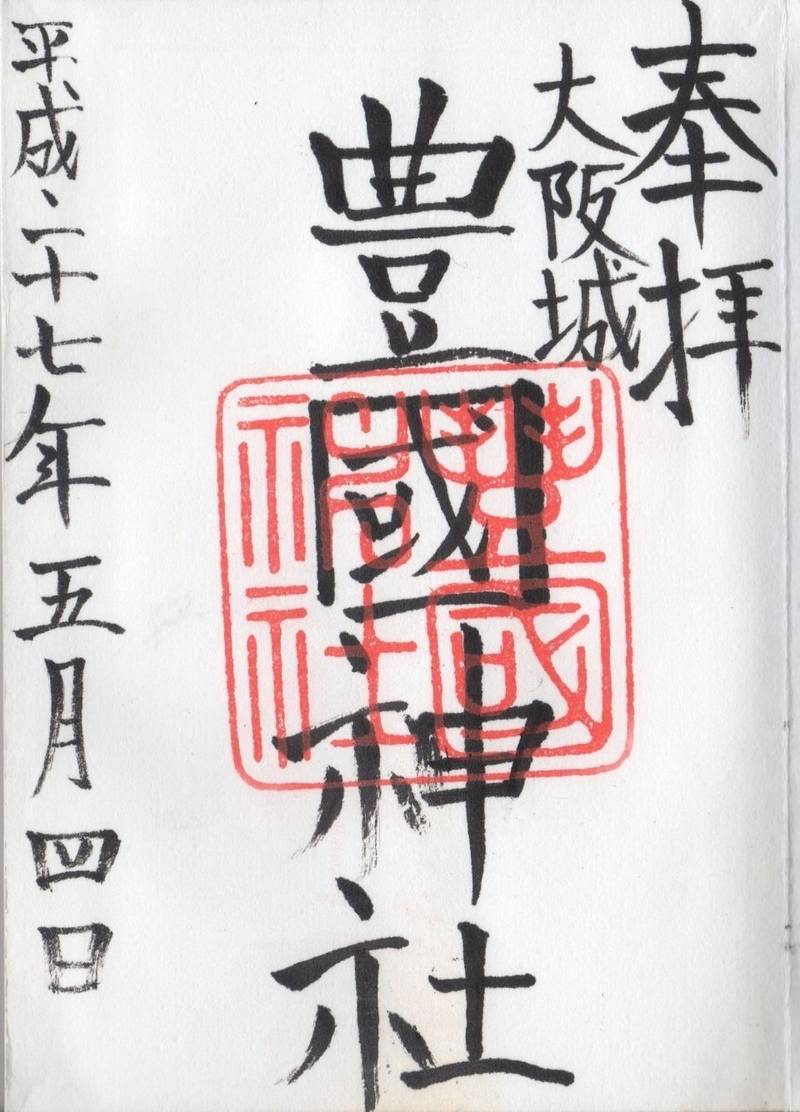 奉拝
大阪城
豊國神社
豊國神社
平成二十七年五月四日